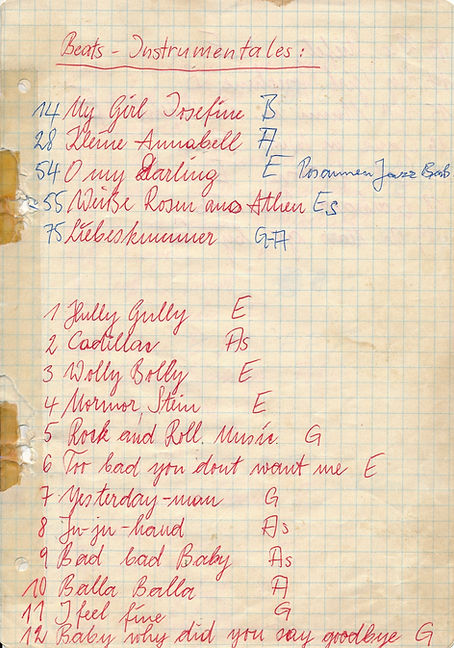 Beats - Instrumentales:
14 My Girl Josefine B
28 Kleine Annabell A
54 O my Darling E Posaunen Jazz Bab
55 Weiße Rosen aus Athen Es
75 Liebeskummer G-A
1 Hully Gully E
2 Cadillac As
3 Wolly Bolly E
4 Mormor, Stein E
5 Rock and Roll. Music. G
6 Too bad you dont want me E
7 Yesterday-man G
8 Ju-ju-hand As
9 Bad bad Baby As
10 Balla Balla A
11 I feel fine G
12 Baby why did you say goodbye G